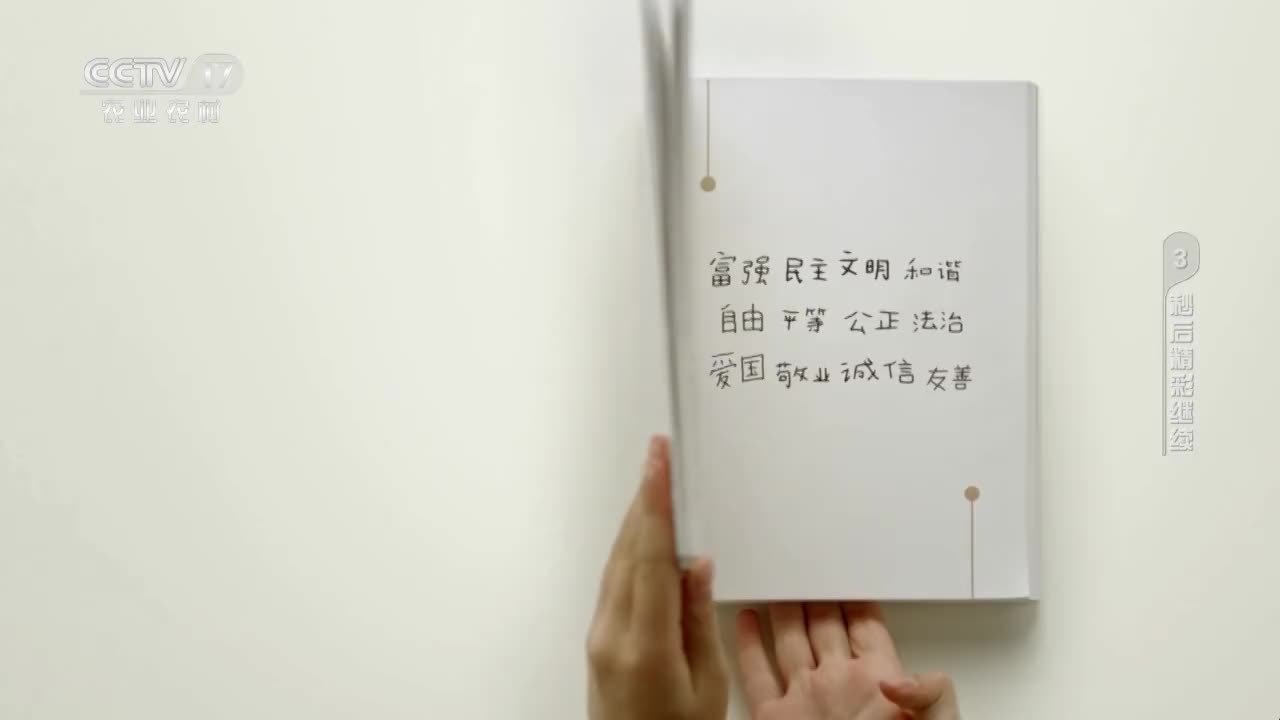 CCTV 17
农业农村
富强 民主 文明 和谐
自由 平等 公正 法治
爱国 敬业 诚信 友善
3
秒后精彩继续